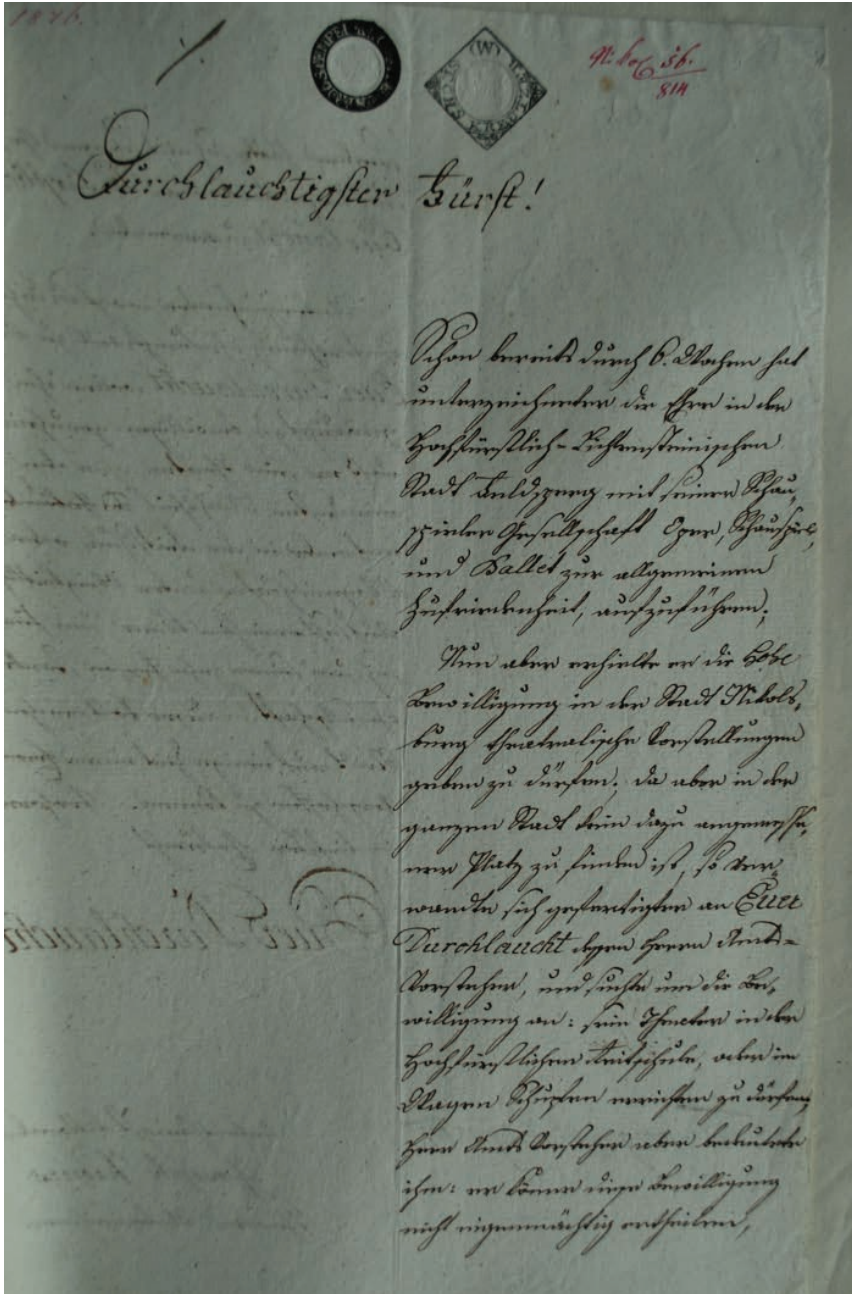 1826.
N: Exh 56.
814
Durchlauchtigster Fürst!
Schon bereits durch 6. Wochen hat
unterzeichneter die Ehre in der
Hochfürstlich-Lichtensteinischen
Stadt Feldsperg mit seiner Schau-
spieler Gesellschaft Oper, Schauspiel,
und Ballet zur allgemeinen
Zufriedenheit, aufzuführen;
Nun aber erhielte er die hohe
Bewilligung in der Stadt Nikols-
burg theatralische Vorstellungen
geben zu dürfen; da aber in der
ganzen Stadt kein dazu angemesse-
ner Platz zu finden ist, so ver-
wandte sich gefertigter an Euer
Durchlaucht dessen Herrn Amts-
Vorsteher, und suchte um die Be-
willigung an: sein Theater in der
Hochfürstlichen Reitschule, oder im
Wagen Schupfen errichten zu dürfen;
Herr Amts Vorsteher aber bedeutete
ihm: er könne diese Bewilligung
nicht eigenmächtig ertheilen,